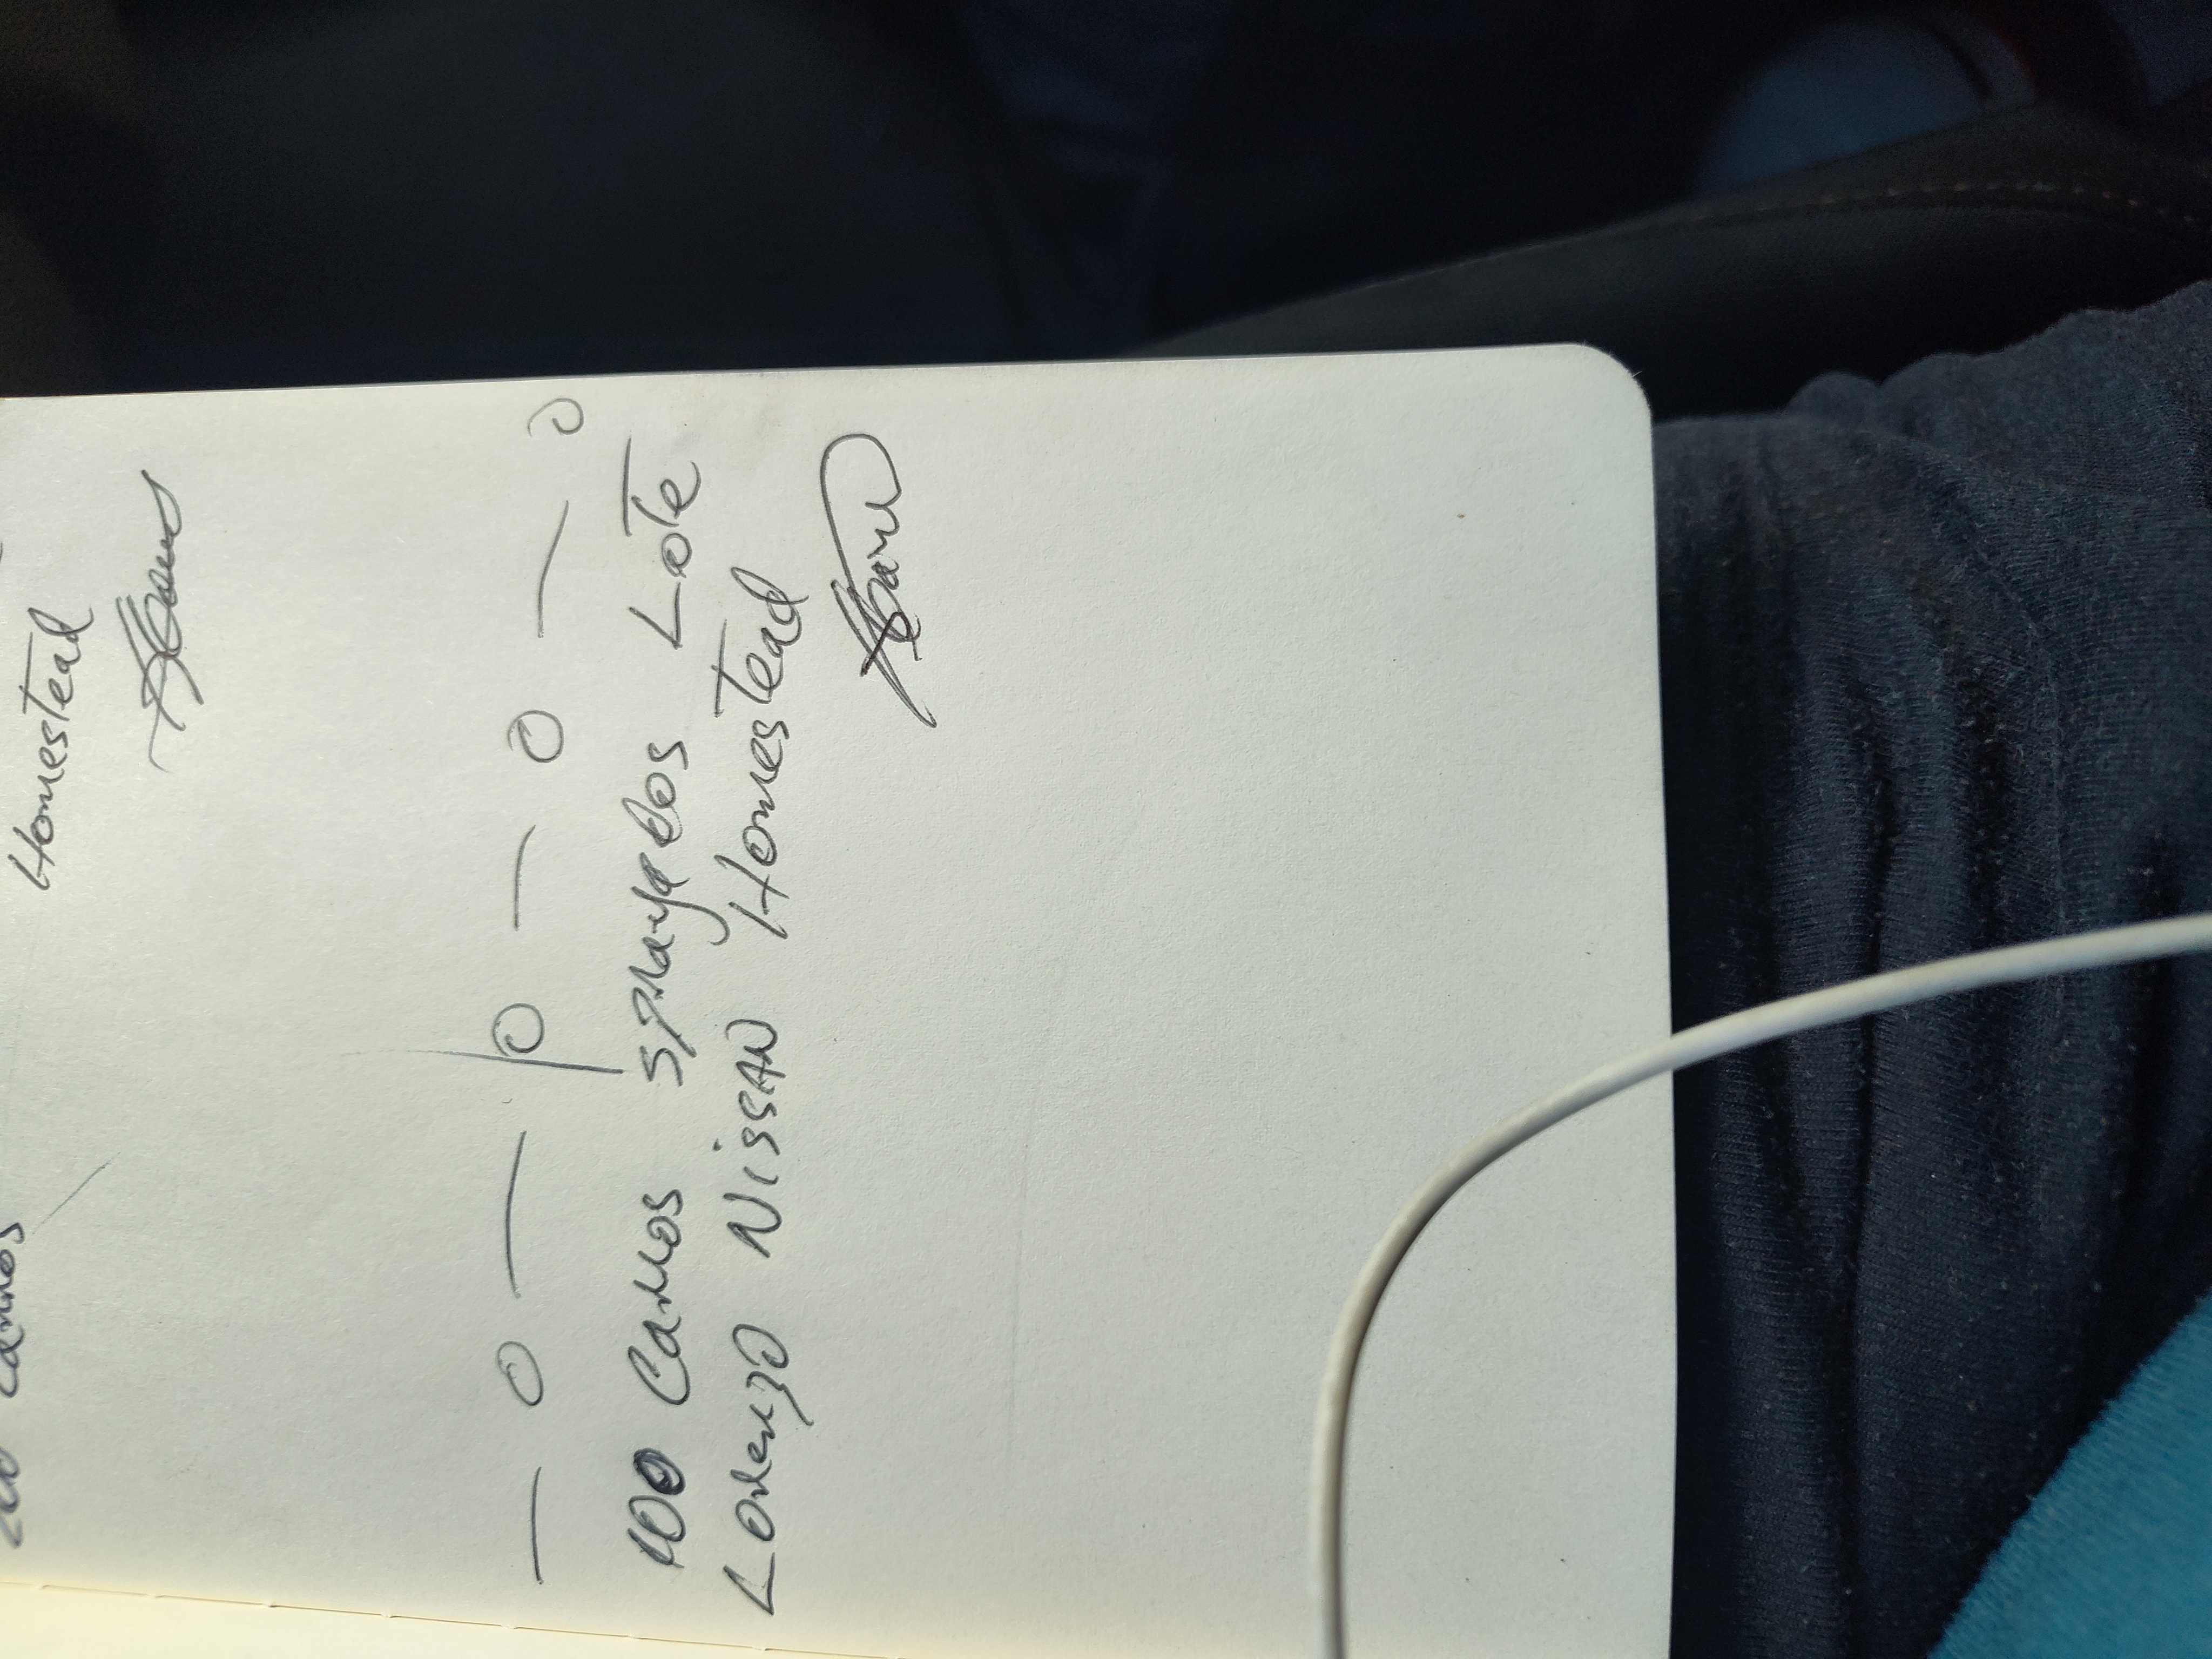 Carros
Homestead
— o — o — o — o
100 Carros sprayados Lote
Lorenzo Nissan Homestead